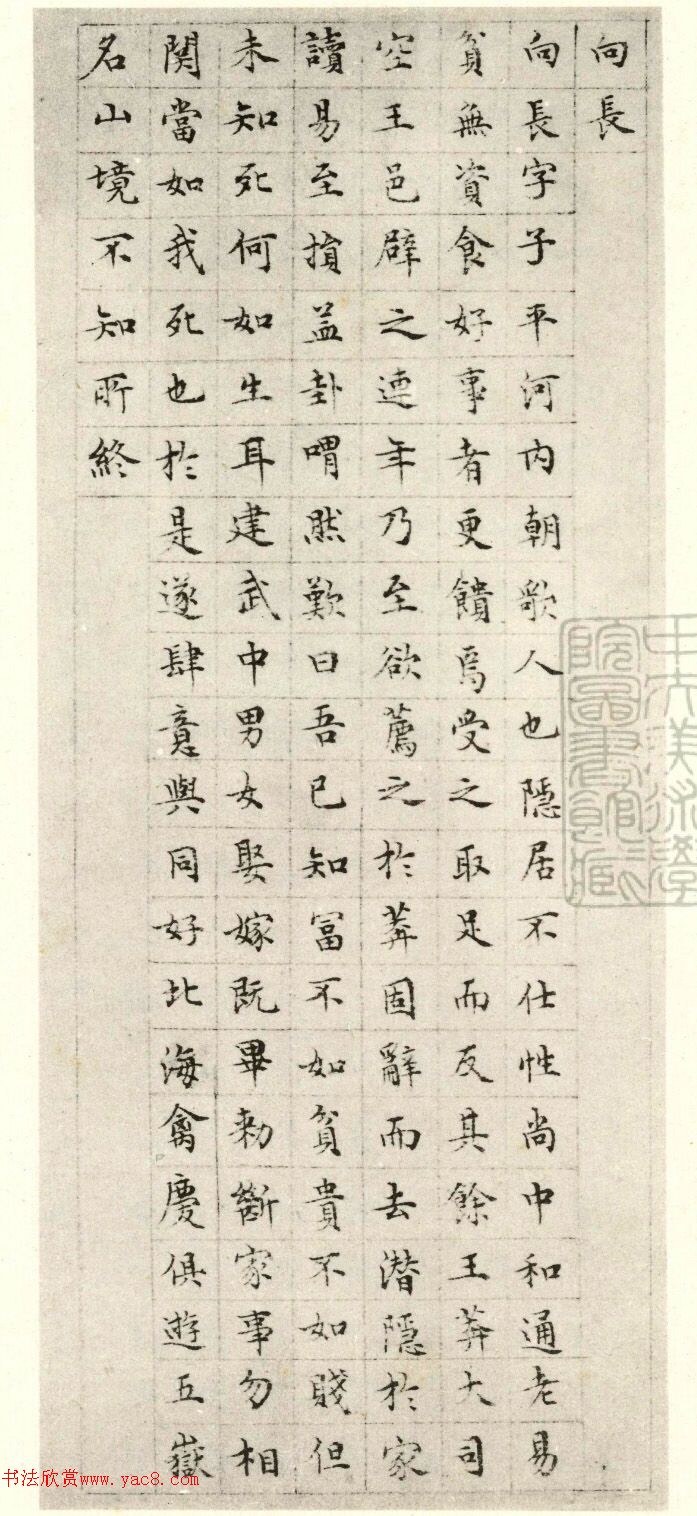 向長
向長字子平河内朝歌人也隱居不仕性尚中和通老易
貧無資食好事者更饋焉受之取足而反其餘王莽大司
空王邑辟之連年乃至欲薦之於莽固辭而去潛隱於家
讀易至損益卦喟然歎曰吾已知富不如貧貴不如賤但
未知死何如生耳建武中男女娶嫁既畢勑斷家事勿相
関當如我死也於是遂肆意與同好北海禽慶俱遊五嶽
名山境不知所終
书法欣赏www.yac8.com